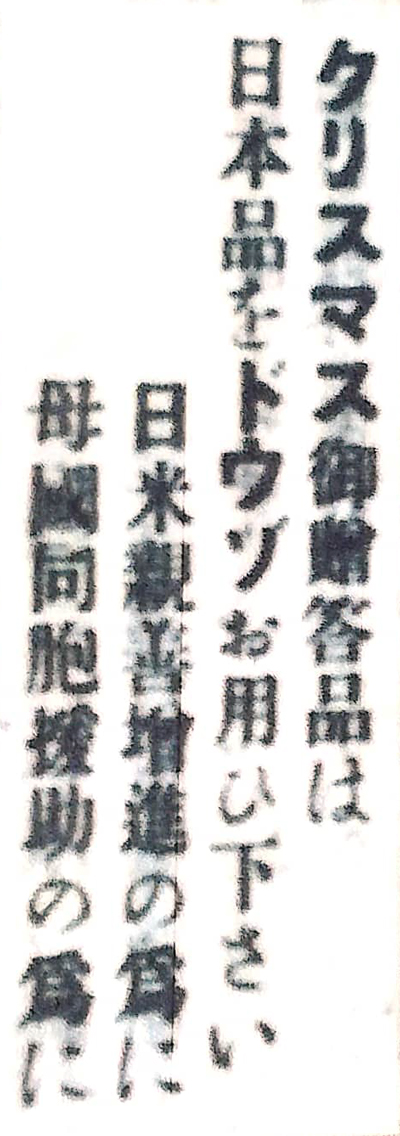 クリスマス御贈答品は
日本品をドウゾお用ひ下さい
日米親善增進の爲に
母國同胞援助の爲に